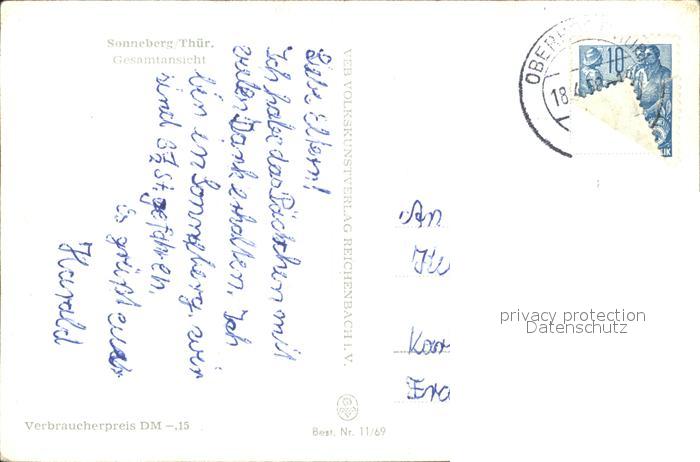 Sonneberg/Thür.
Gesamtansicht
Liebe Eltern!
Ich habe das Päckchen mit
vielen Dank erhalten. Ich
bin in Sonneberg. wir
sind 3½ St. gefahren.
Es grüßt euch
Harald
Verbraucherpreis DM –,15
VEB VOLKSKUNSTVERLAG REICHENBACH I. V.
Best. Nr. 11/69
10
18.4.58
An
privacy protection
Datenschutz